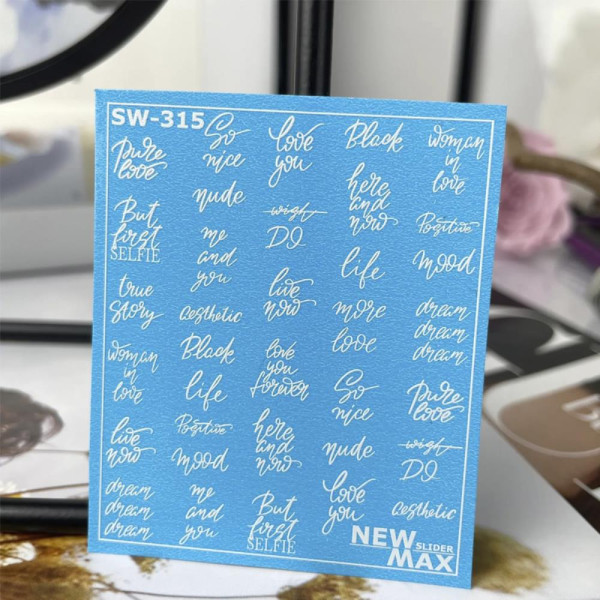 SW-315
So
nice
love
you
Black
woman
in
love
pure
love
nude
here
and
now
But
first
SELFIE
wish
DO
Positive
me
and
you
life
mood
true
story
aesthetic
live
now
more
love
dream
dream
dream
woman
in
love
Black
love
you
forever
life
So
nice
pure
love
live
now
Positive
mood
here
and
now
nude
wish
DO
dream
dream
dream
me
and
you
But
first
SELFIE
love
you
aesthetic
NEW
SLIDER
MAX